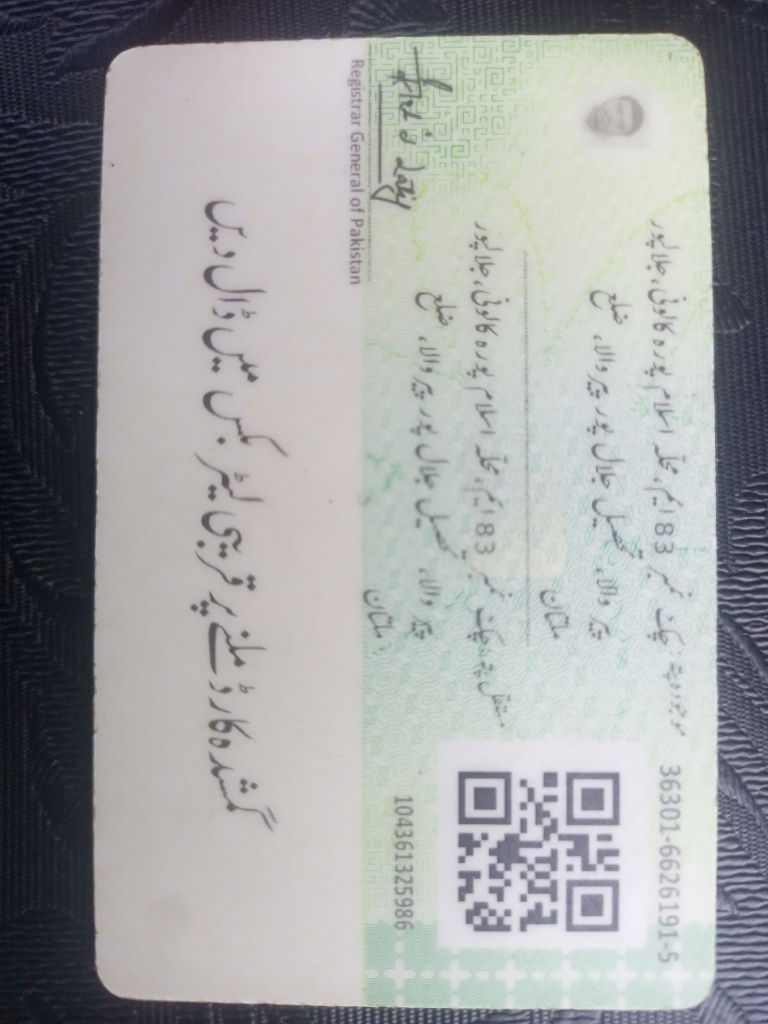 36301-6626191-5
موجودہ پتہ: چک نمبر 83 ایم، محلہ اسلام پورہ کالونی، جلالپور
پیر والا، تحصیل جلال پور پیر والا، ضلع
ملتان
مستقل پتہ: چک نمبر 83 ایم، محلہ اسلام پورہ کالونی، جلالپور
پیر والا، تحصیل جلال پور پیر والا، ضلع
ملتان
104361325986
Registrar General of Pakistan
گمشدہ کارڈ ملنے پر قریبی لیٹر بکس میں ڈال دیں